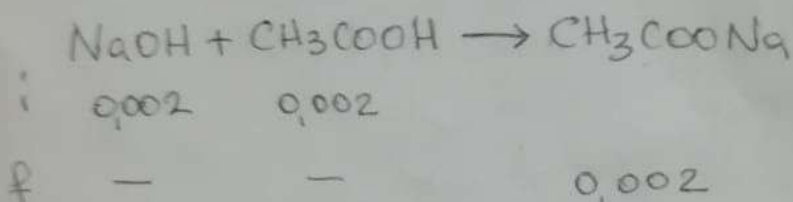 NaOH + CH3COOH → CH3COONa
i 0,002 0,002
f — — 0,002